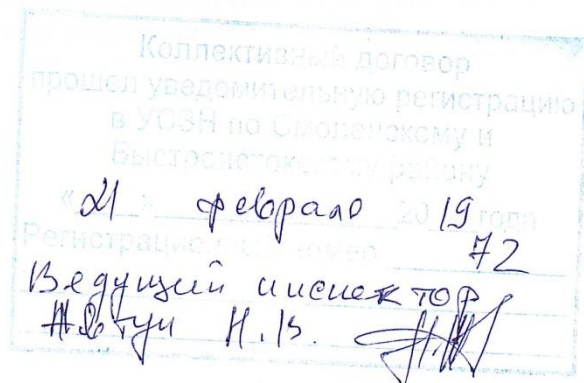 Коллективный договор
прошел уведомительную регистрацию
в УСЗН по Смоленскому и
Быстроистокскому району
«21» февраля 2019 года
Регистрационный номер 72
Ведущий инспектор
Н.В.